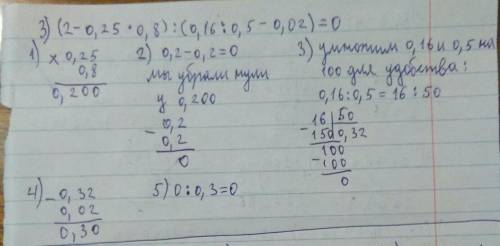 3) (2-0,25·0,8):(0,16:0,5-0,02)=0
1) х 0,25
0,8
0,200
2) 0,2-0,2=0
мы убрали нули
у 0,200
- 0,2
0,2
0
3) умножим 0,16 и 0,5 на
100 для удобства:
0,16:0,5=16:50
- 16 50
150 0,32
100
-100
0
4) - 0,32
0,02
0,30
5) 0:0,3=0